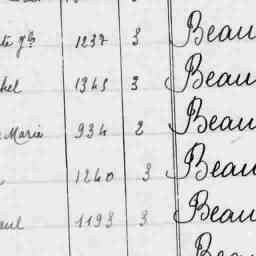 te Jh 1237 3 Beau
hel 1345 3 Beau
Marie 934 2 Beau
1240 3 Beau
aul 1193 3 Beau
Beau